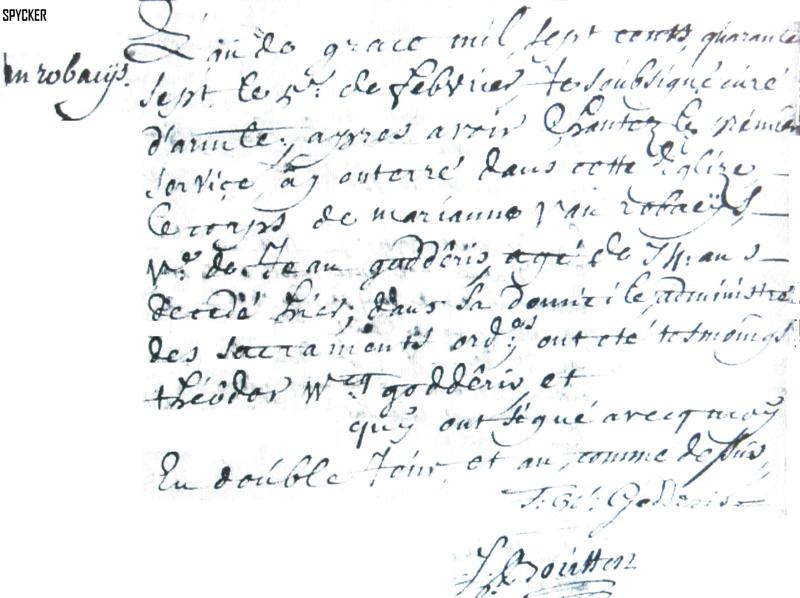 SPYCKER
L'an de grace mil sept cents quarante
sept le 5e. de febvrier, Je soubsigné curé
d'armte., apres avoir chantez le
service, ay enterré dans cette Eglize
le corps de marianne Van robaeijs
Ve. de Jean godderis agé de 74. ans
decedé hier, dans sa domicile, administré
des sacraments ord. ont eté tesmoings
théodor godderis, et
quy ont signé avecq moy
En double Jour, et an, comme dessus,
Godderis
Boutten
robaeijs.